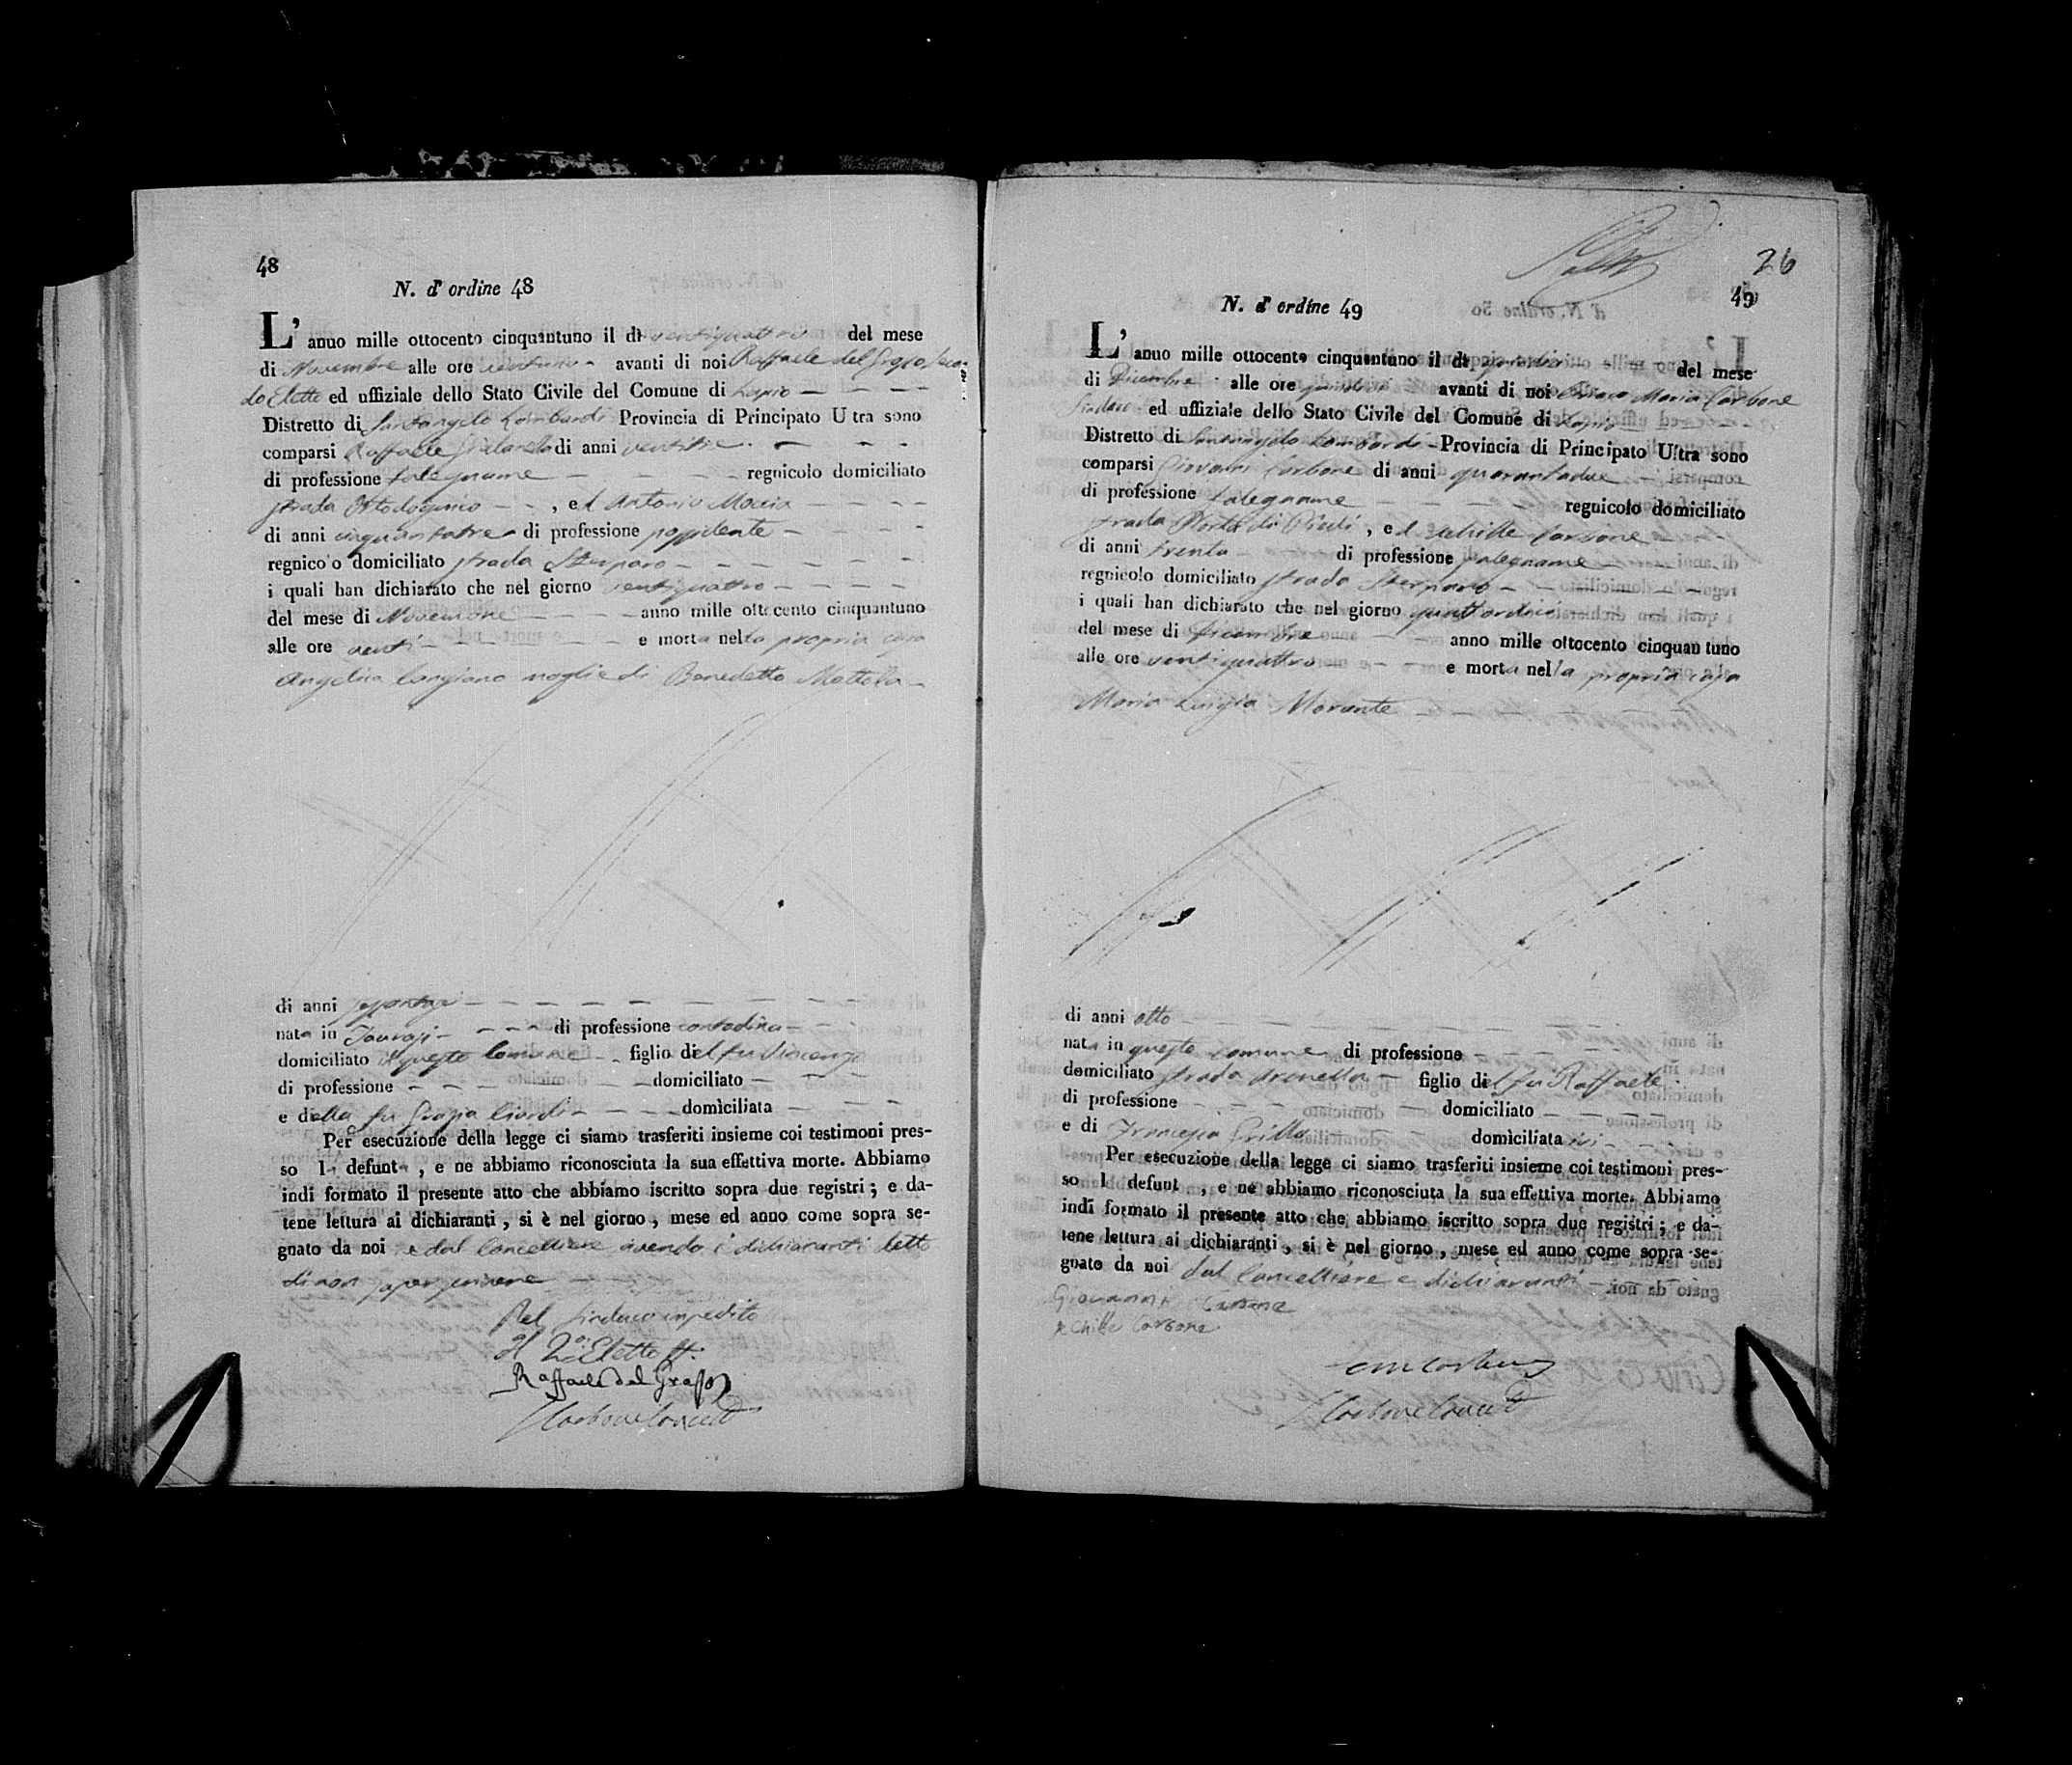 48
N. d' ordine 48
L' anno mille ottocento cinquantuno il dì ventiquattro del mese
di Novembre alle ore ventuno avanti di noi Raffaele del Grosso Secon
do Eletto ed uffiziale dello Stato Civile del Comune di Lapio
Distretto di Santangelo Lombardi Provincia di Principato U tra sono
comparsi Raffaele di anni ventitre
di professione falegname regnicolo domiciliato
strada , ed Antonio Moccia
di anni cinquantatre di professione possidente
regnico o domiciliato strada Sterparo
i quali han dichiarato che nel giorno ventiquattro
del mese di Novembre anno mille ottocento cinquantuno
alle ore venti e morta nella propria casa
Angelica Cangiano moglie di Benedetto Mottola
di anni
nata in Taurasi di professione contadina
domiciliato in questo Comune figlio del fu Vincenzo
di professione domiciliato
e della fu Grazia domiciliata
Per esecuzione della legge ci siamo trasferiti insieme coi testimoni pres-
so l defunt , e ne abbiamo riconosciuta la sua effettiva morte. Abbiamo
indi formato il presente atto che abbiamo iscritto sopra due registri ; e da-
tene lettura ai dichiaranti , si è nel giorno , mese ed anno come sopra se-
gnato da noi e dal Cancelliere avendo i dichiaranti detto
di non saper scrivere
Pel Sindaco impedito
Il 2° Eletto
Raffaele del Grosso
Carbone Cancell
26
49
N. d' ordine 49
L' anno mille ottocento cinquantuno il dì quindici del mese
di Dicembre alle ore avanti di noi Ciriaco Maria Carbone
Sindaco ed uffiziale dello Stato Civile del Comune di Lapio
Distretto di Santangelo Lombardi Provincia di Principato Ultra sono
comparsi Giovanni Carbone di anni quarantadue
di professione falegname regnicolo domiciliato
strada Porta di , ed Achille Carbone
di anni trenta di professione falegname
regnicolo domiciliato strada Sterparo
i quali han dichiarato che nel giorno quattordici
del mese di Dicembre anno mille ottocento cinquantuno
alle ore ventiquattro e morta nella propria casa
Maria Luigia Morante
di anni otto
nata in questo comune di professione
domiciliato strada Arenella figlio del fu Raffaele
di professione domiciliato
e di Francesca Grillo domiciliata ivi
Per esecuzione della legge ci siamo trasferiti insieme coi testimoni pres-
so l defunt , e ne abbiamo riconosciuta la sua effettiva morte. Abbiamo
indi formato il presente atto che abbiamo iscritto sopra due registri ; e da-
tene lettura ai dichiaranti , si è nel giorno , mese ed anno come sopra se-
gnato da noi dal Cancelliere e dichiaranti
Giovanni Carbone
Achille Carbone
Carbone Cancell